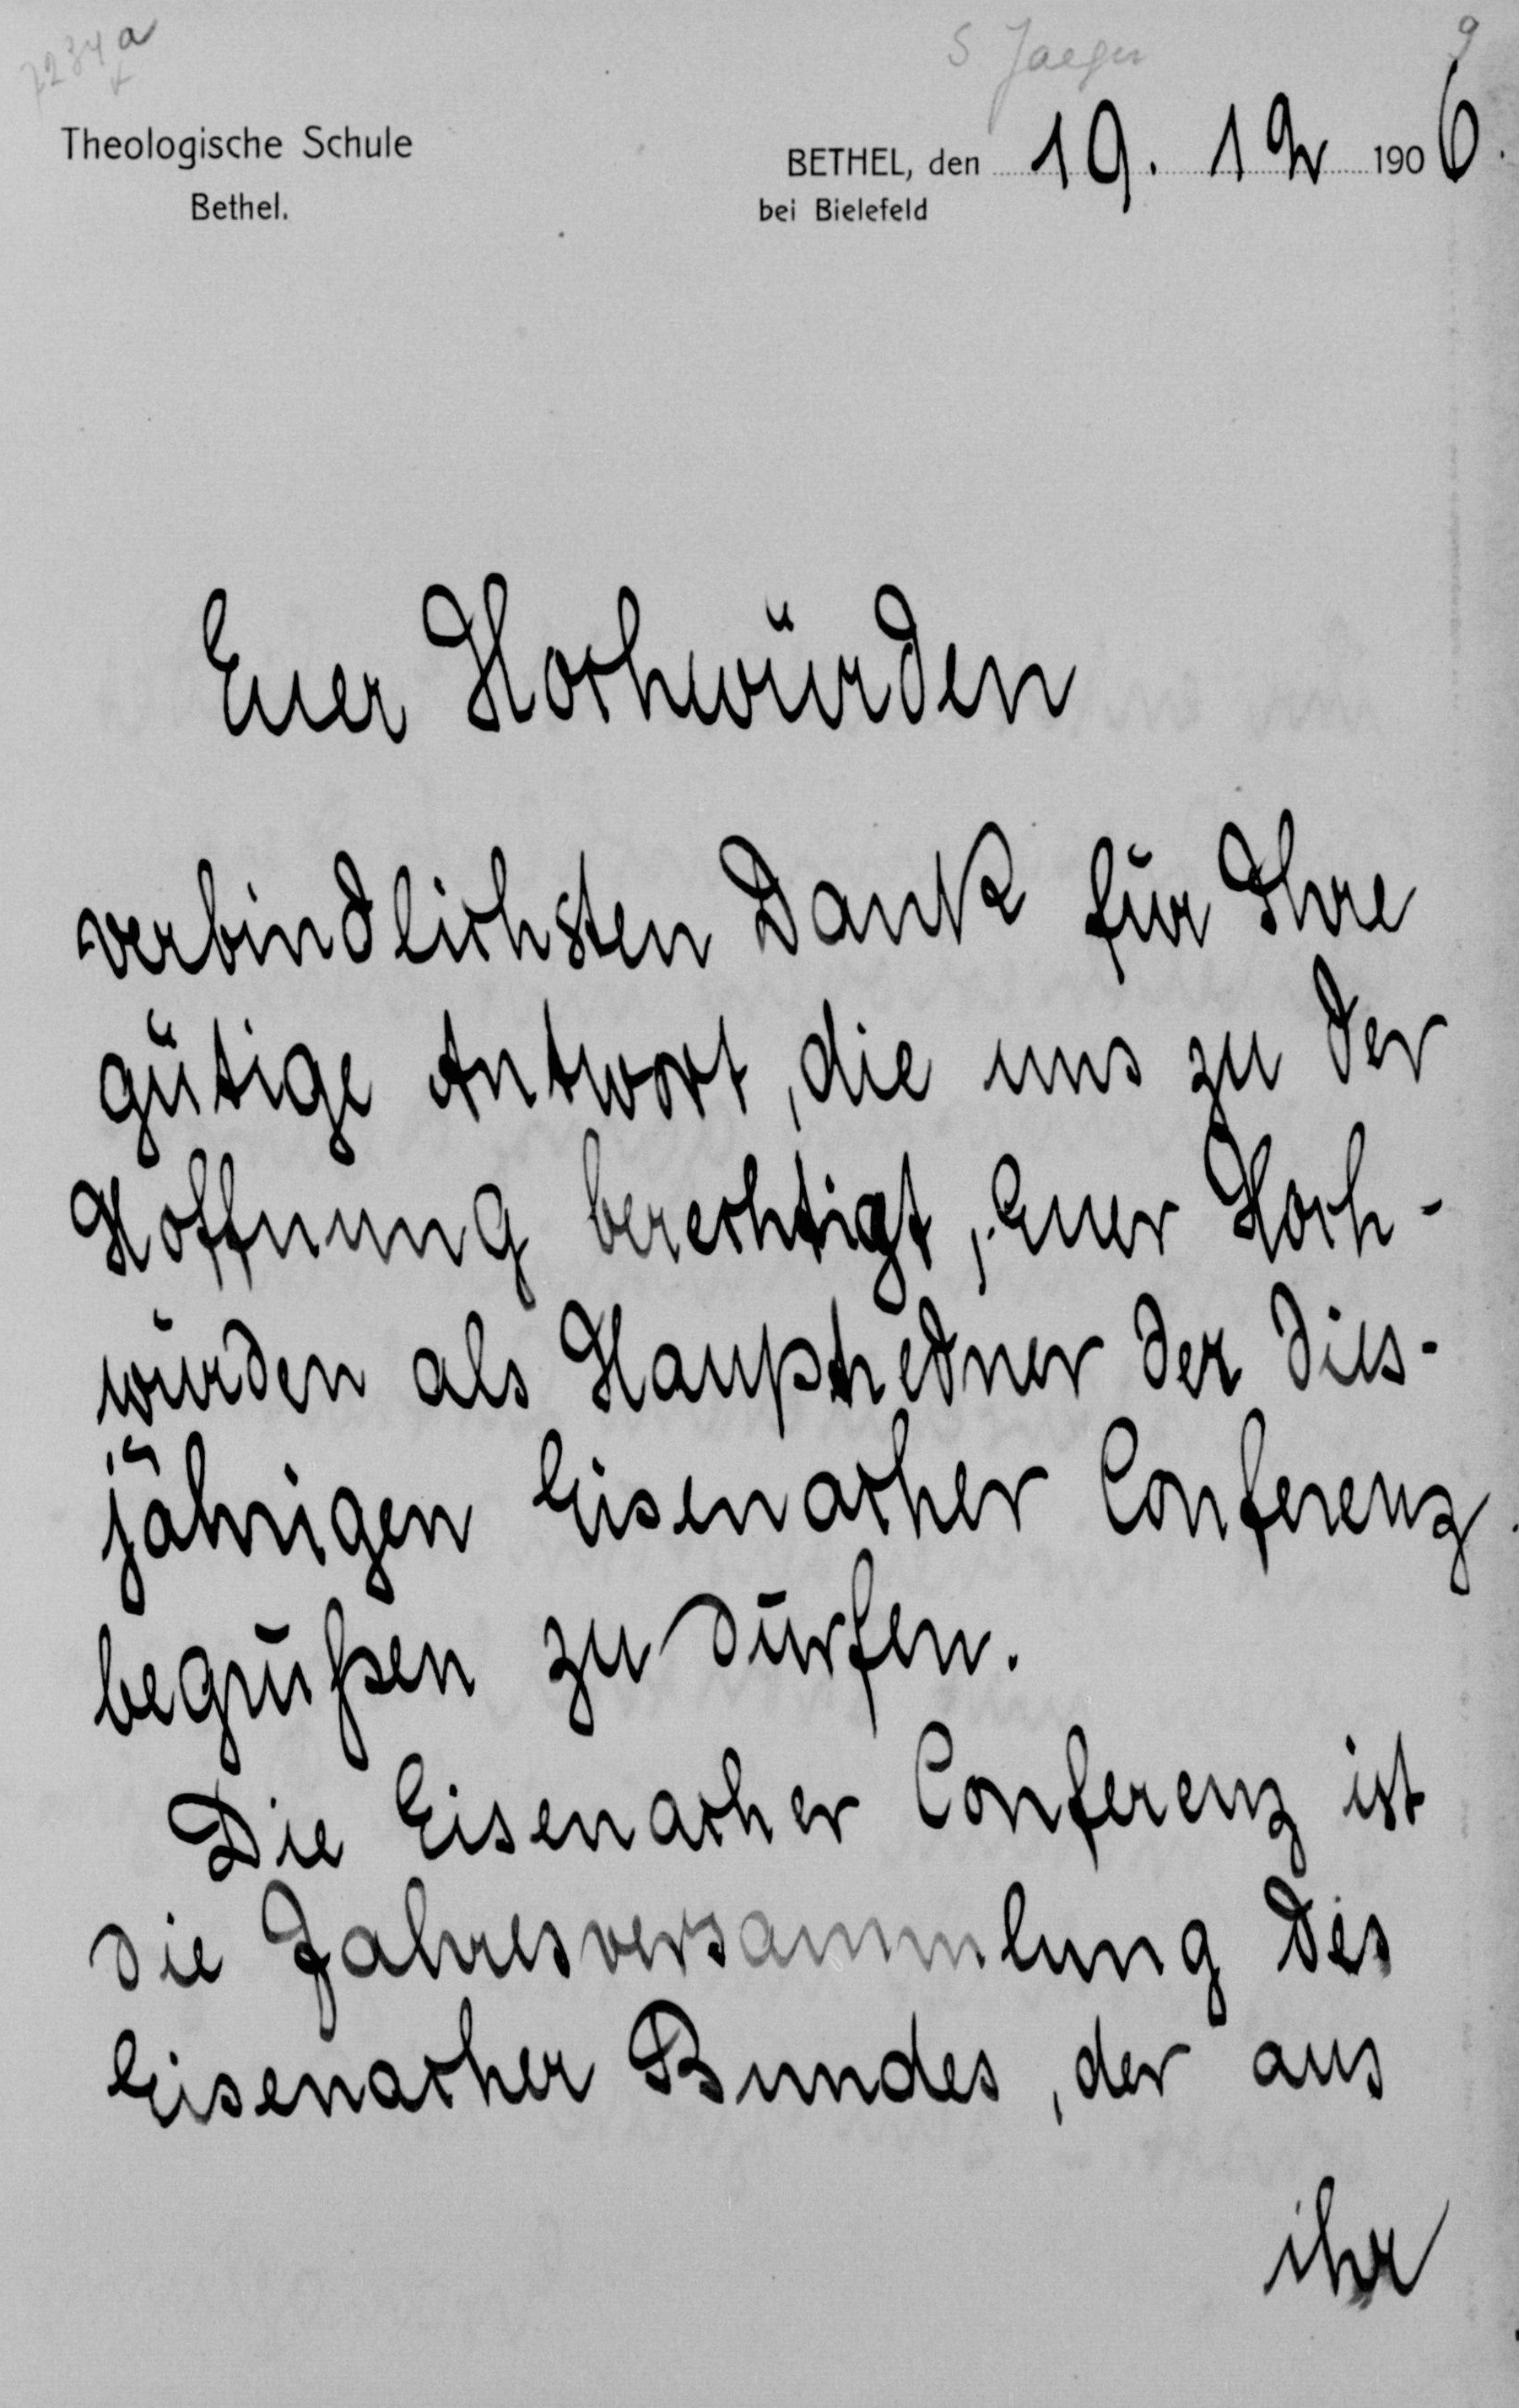 7234a
S Jaeger
9
Theologische Schule
Bethel.
BETHEL, den 19. 12 1906.
bei Bielefeld
Euer Hochwürden
verbindlichsten Dank für Ihre
gütige Antwort, die uns zu der
Hoffnung berechtigt, Euer Hoch-
würden als Hauptredner der dies-
jährigen Eisenacher Conferenz
begrüßen zu dürfen.
Die Eisenacher Conferenz ist
die Jahresversammlung des
Eisenacher Bundes, der aus
ihr